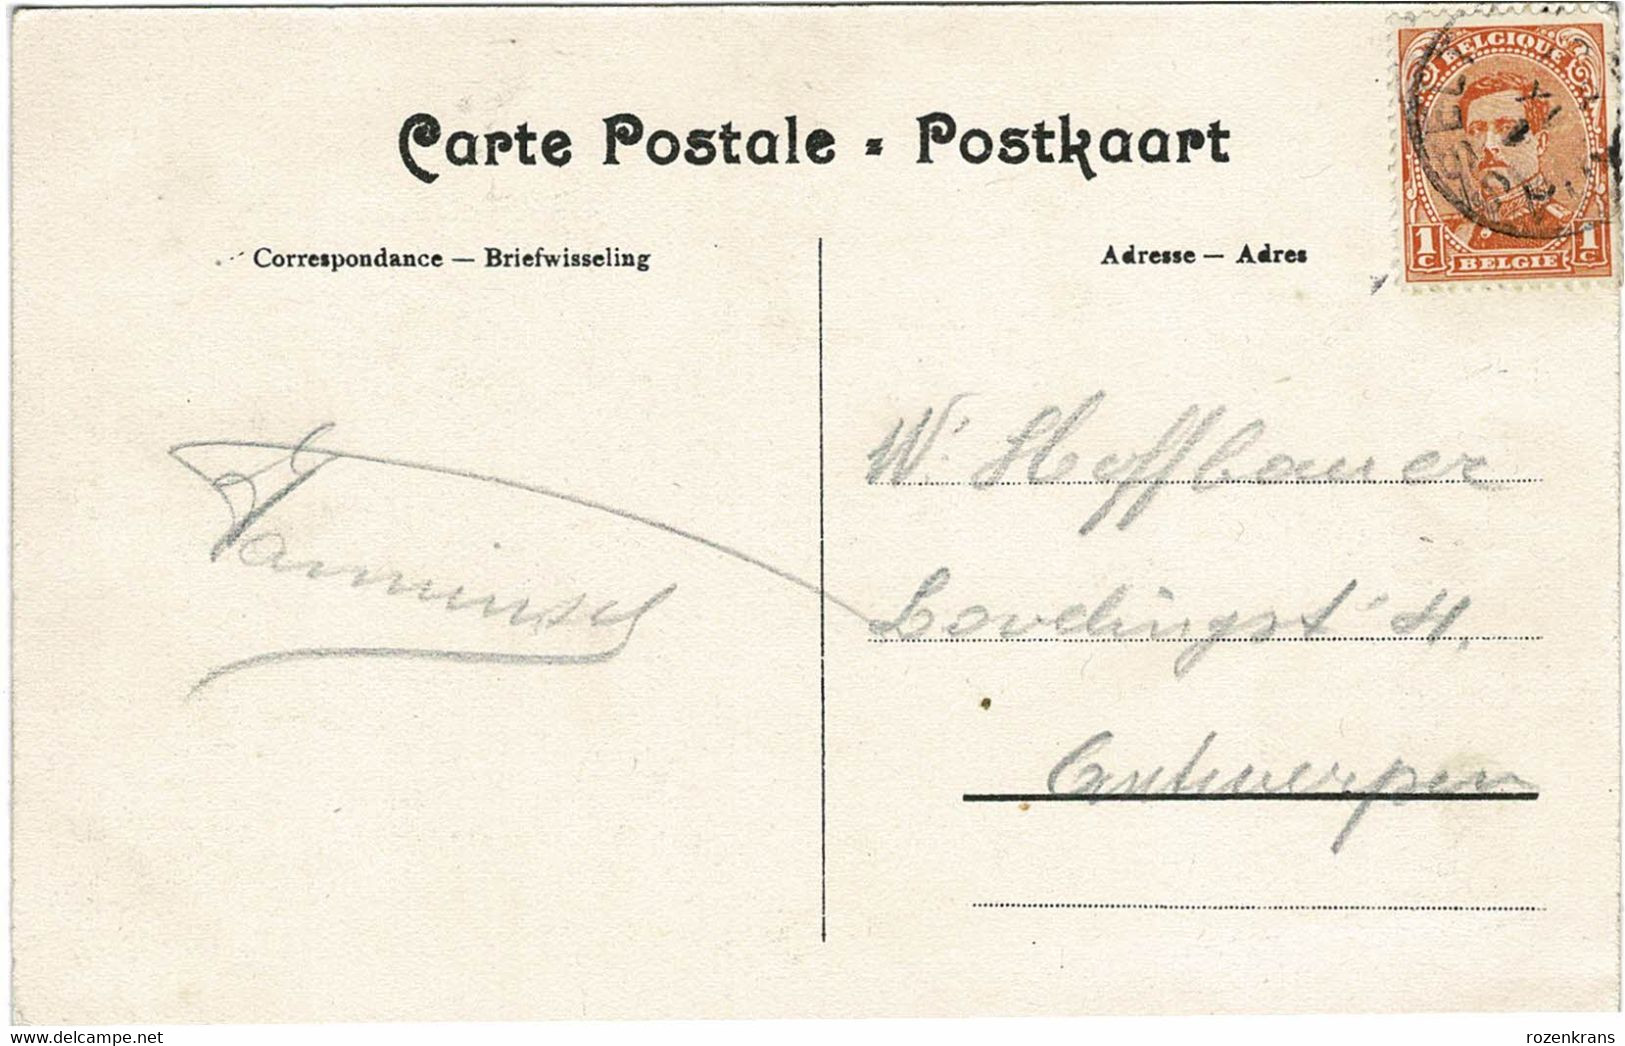 Carte Postale = Postkaart
Correspondance — Briefwisseling
Adresse — Adres
BELGIQUE
1c BELGIË 1c
W. Hoffbauer
Antwerpen
delcampe.net
rozenkrans